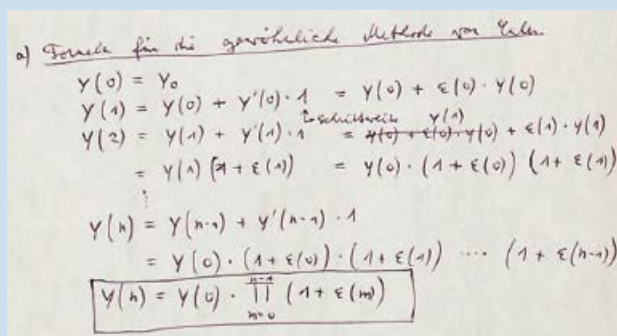 a) Formeln für die gewöhnliche Methode von Euler.
y(0) = y₀
y(1) = y(0) + y'(0) · 1 = y(0) + ε(0) · y(0)
↳ Schrittweite y(1)
y(2) = y(1) + y'(1) · 1 = y(0) + ε(0) · y(0) + ε(1) · y(1)
= y(1) (1 + ε(1)) = y(0) · (1 + ε(0)) (1 + ε(1))
⋮
y(n) = y(n-1) + y'(n-1) · 1
= y(0) · (1 + ε(0)) · (1 + ε(1)) ···· (1 + ε(n-1))
y(n) = y(0) · ∏ₘ₌₀ⁿ⁻¹ (1 + ε(m))